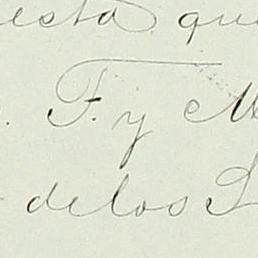 esta que
F. y M
de los S